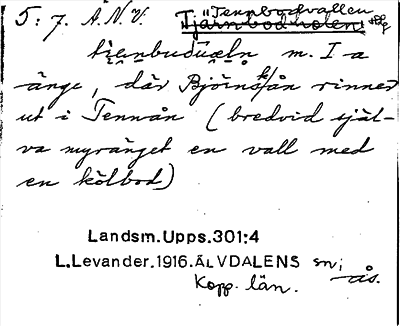 5:7. Ä.N.V. "Tennbodvallen
Tjärnbodholen
tienbudueln m. I a
änge, där Björnåkån rinner
ut i Tennån (bredvid själ-
va myränget en vall med
en kölbod)
Landsm.Upps.301:4
L.Levander.1916.ÄLVDALENS sn;
Kopp. län. ås.